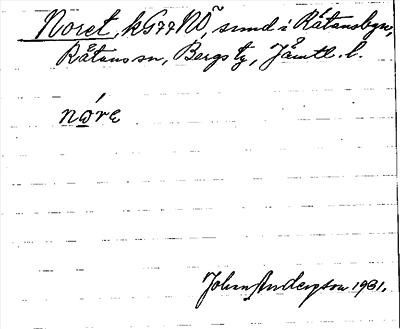 Noret, kG77NÖ, sund i Råtansbyn,
Råtans sn, Bergs tg, Jämtl. l.
nǿre
Johan Andersson 1931.